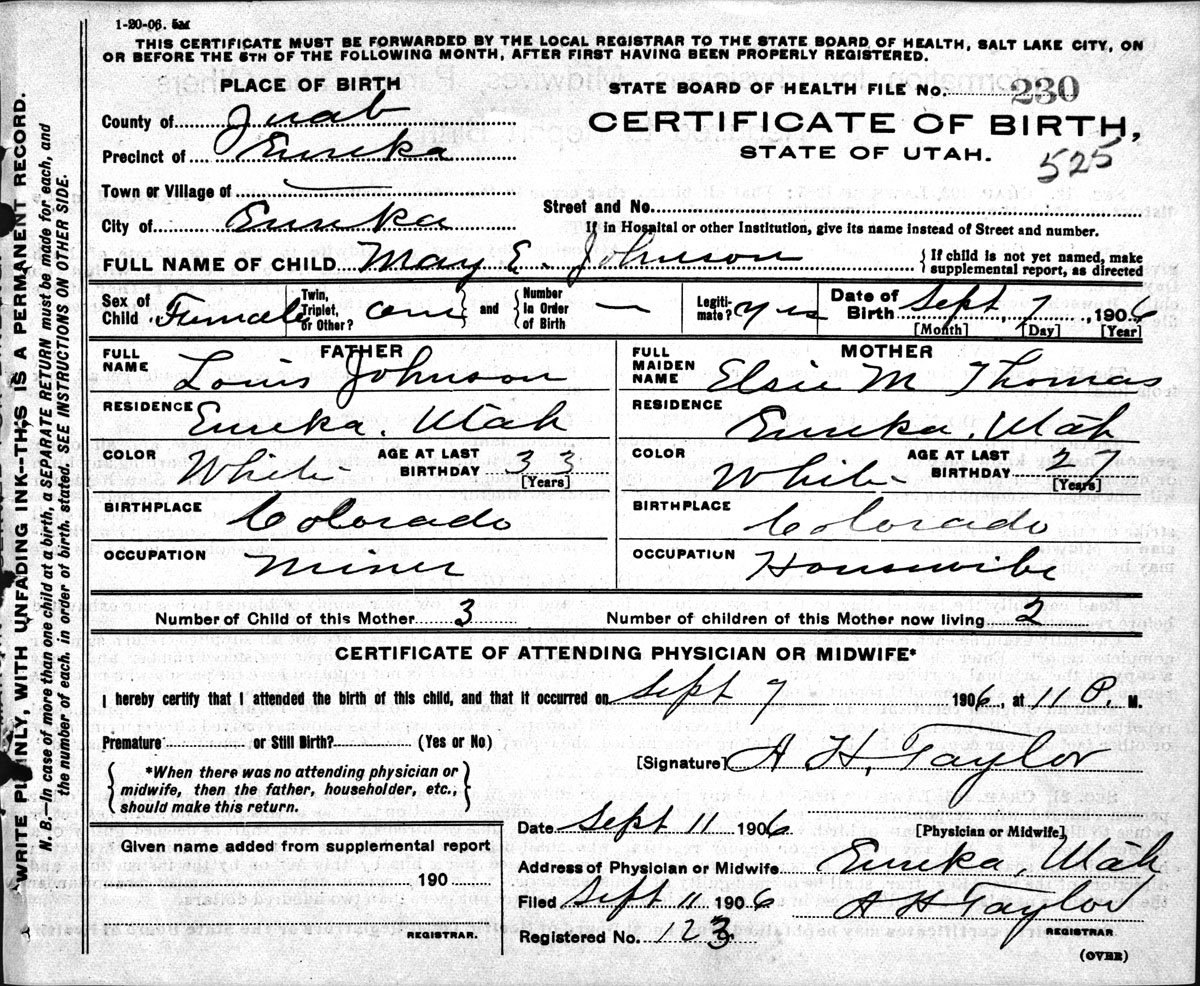 1-20-06. 5M
THIS CERTIFICATE MUST BE FORWARDED BY THE LOCAL REGISTRAR TO THE STATE BOARD OF HEALTH, SALT LAKE CITY, ON
OR BEFORE THE 5TH OF THE FOLLOWING MONTH, AFTER FIRST HAVING BEEN PROPERLY REGISTERED.
PLACE OF BIRTH
STATE BOARD OF HEALTH FILE No. 230
County of Juab
CERTIFICATE OF BIRTH,
Precinct of Eureka
STATE OF UTAH.
525
Town or Village of
Street and No.
City of Eureka
If in Hospital or other Institution, give its name instead of Street and number.
FULL NAME OF CHILD May E. Johnson { If child is not yet named, make supplemental report, as directed
Sex of Child Female Twin, Triplet, or Other? one and { Number in Order of Birth — Legitimate? yes Date of Birth Sept. 7, 1906
[Month] [Day] [Year]
FATHER
MOTHER
FULL NAME Louis Johnson
FULL MAIDEN NAME Elsie M Thomas
RESIDENCE Eureka, Utah
RESIDENCE Eureka, Utah
COLOR White AGE AT LAST BIRTHDAY 33 [Years]
COLOR White AGE AT LAST BIRTHDAY 27 [Years]
BIRTHPLACE Colorado
BIRTHPLACE Colorado
OCCUPATION Miner
OCCUPATION Housewife
Number of Child of this Mother 3 Number of children of this Mother now living 2
CERTIFICATE OF ATTENDING PHYSICIAN OR MIDWIFE*
I hereby certify that I attended the birth of this child, and that it occurred on Sept 7 1906, at 11 P. M.
Premature or Still Birth? (Yes or No)
[Signature] A H, Taylor
{ *When there was no attending physician or
midwife, then the father, householder, etc.,
should make this return. }
Date Sept 11 1906 [Physician or Midwife]
Given name added from supplemental report
190
REGISTRAR.
Address of Physician or Midwife Eureka, Utah
Filed Sept 11 1906 A H Taylor
REGISTRAR
Registered No. 123
(OVER)
WRITE PLAINLY, WITH UNFADING INK—THIS IS A PERMANENT RECORD.
N. B.—In case of more than one child at a birth, a SEPARATE RETURN must be made for each, and
the number of each, in order of birth, stated. SEE INSTRUCTIONS ON OTHER SIDE.